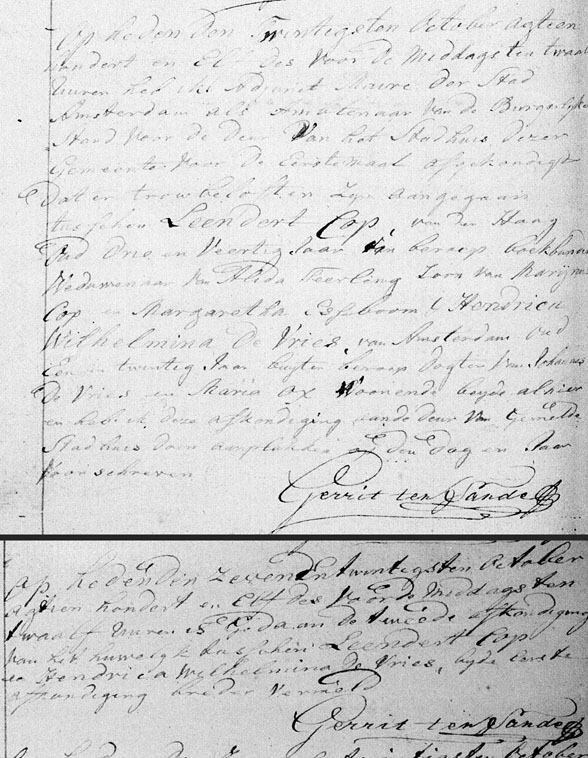 Op heden den Twintigsten October agtien
hondert en Elf des voor de Middags ten twaalf
uuren heb ik Adjunct Maire der Stad
Amsterdam als Amptenaar van de Burgerlijke
Stand voor de deur van het Stadhuis dezer
Gemeente voor de eerstemaal afgekondigt
Dat er trouwbeloften zyn aangegaan
tusschen Leendert Cop van den Haag
Oud Drie en Veertig Jaar van beroep
Weduwenaar van Alida Teerling Zoon van
Cop en Margaretha Esseboom & Hendrica
Wilhelmina De Vries van Amsterdam Oud
Een en twintig Jaar buyten beroep dogter van Johannes
De Vries en Maria Ox Woonende beyde alhier
en heb ik deze afkondiging aan de deur van gemelde
Stadhuis doen aanplakken Op den Dag en Jaar
Voorschreven
Gerrit ten Sande
Op heden den Zevenentwintigsten October
Agtien hondert en Elf des Voor de Middags ten
twaalf Uuren is Gedaan de tweede afkondiging
van het huwelyk tusschen Leendert Cop
en Hendrica Wilhelmina De Vries, byde eerste
afkondiging breder vermeld
Gerrit ten Sande
October